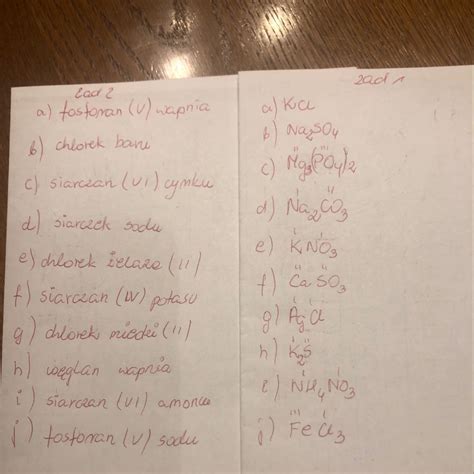 zad 2
a) fosforan (V) wapnia
b) chlorek baru
c) siarczan (VI) cynku
d) siarczek sodu
e) chlorek żelaza (II)
f) siarczan (IV) potasu
g) chlorek miedzi (II)
h) węglan wapnia
i) siarczan (VI) amonu
j) fosforan (V) sodu
zad 1
a) KCl
b) Na2SO4
c) Mg3(PO4)2
d) Na2CO3
e) KNO3
f) CaSO3
g) AgCl
h) K2S
i) NH4NO3
j) FeCl3